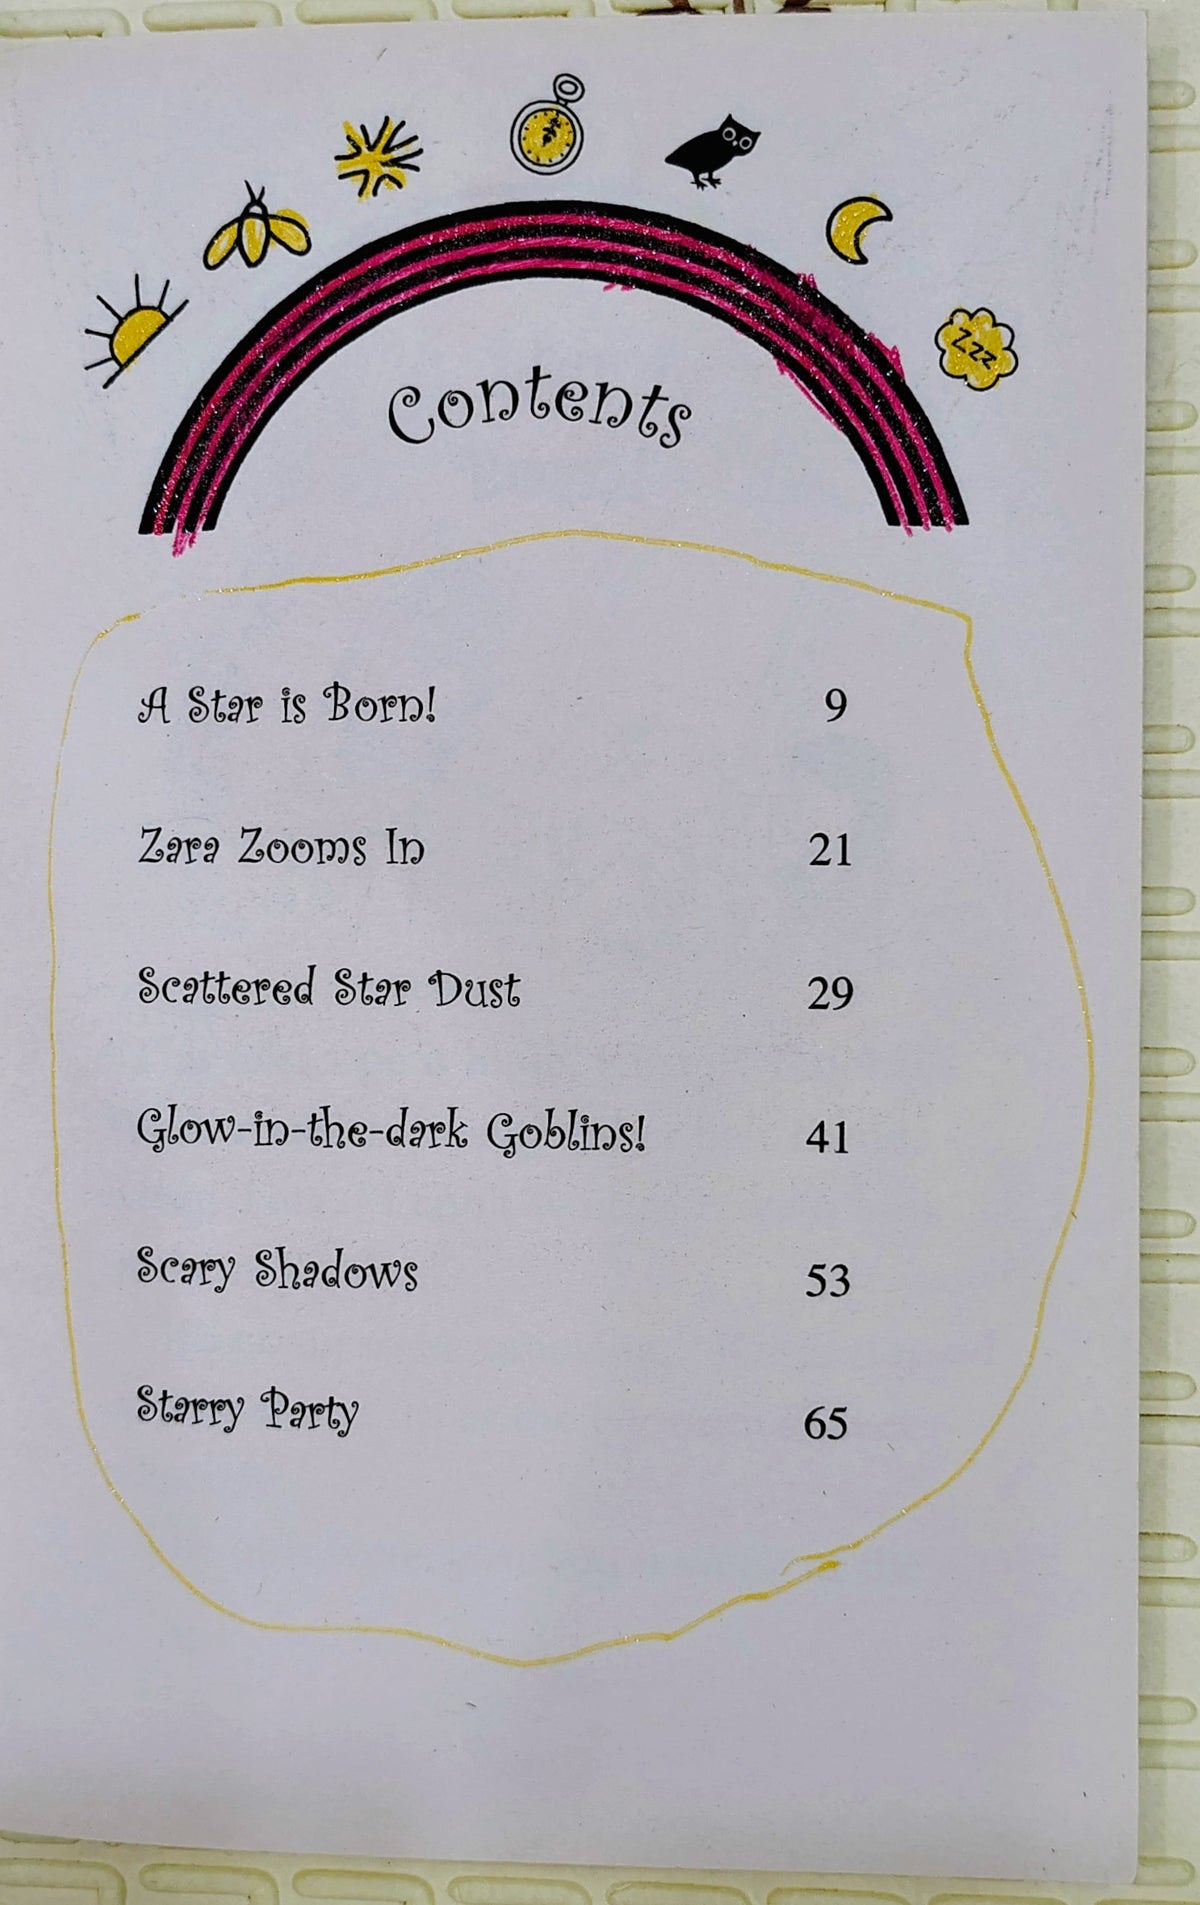 Zzz
Contents
A Star is Born! 9
Zara Zooms In 21
Scattered Star Dust 29
Glow-in-the-dark Goblins! 41
Scary Shadows 53
Starry Party 65